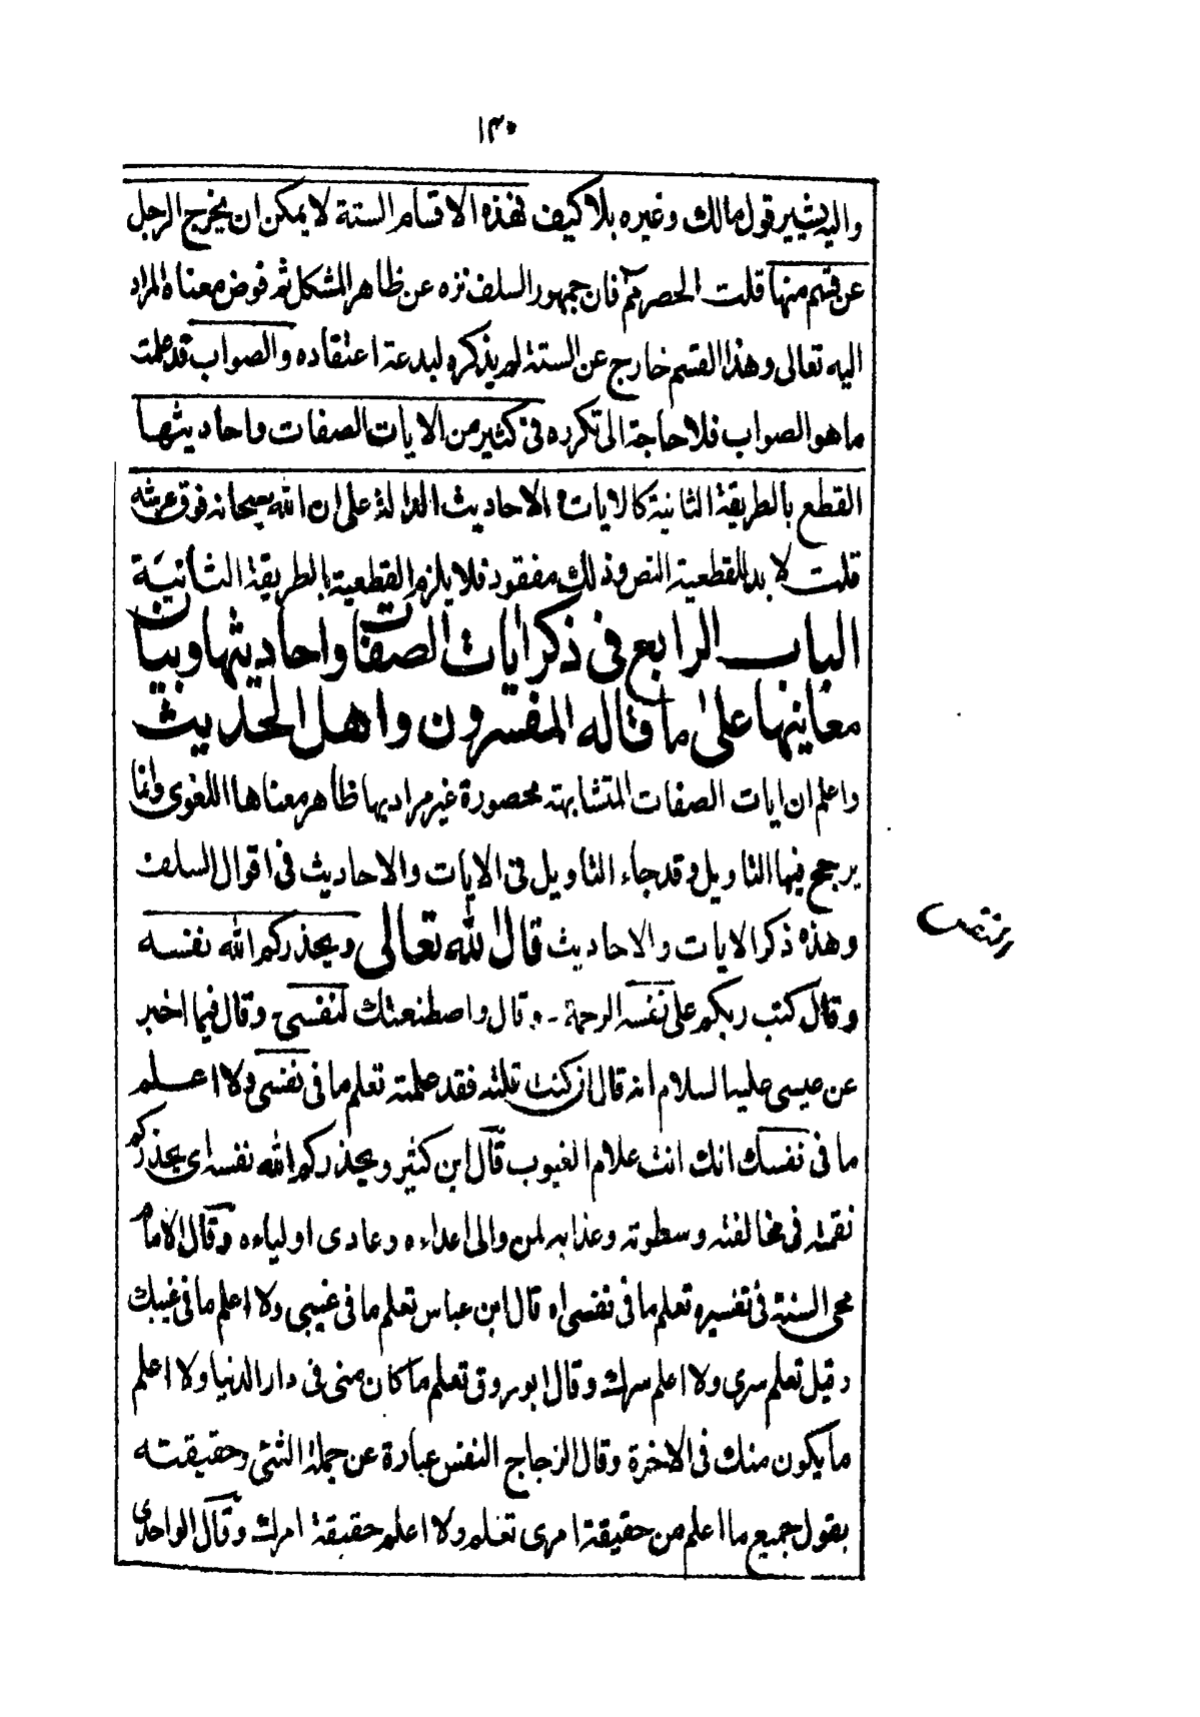 ١٣٠
واليه يشير قول مالك وغيره بلا كيف فهذه الاقسام الستة لا يمكن ان يخرج الرجل
عن قسم منها قلت الحصر ثم فان جمهور السلف نزه عن ظاهر المشكل ثم فوض معناه المراد
اليه تعالى وهذا القسم خارج عن الستة لم يذكره لبدعة اعتقاده والصواب قد علمت
ما هو الصواب فلا حاجة الى تكرره في كثير من الايات الصفات واحاديثها
القطع بالطريقة الثانية كالايات والاحاديث الدالة على ان الله سبحانه فوق عرشه
قلت لا بد للقطعية النص وذلك مفقود فلا يلزم القطعية بالطريقة الثانية
الباب الرابع فى ذكر ايات الصفات واحاديثها وبيان
معانيها على ما قاله المفسرون واهل الحديث
واعلم ان ايات الصفات المتشابهة محصورة غير مراد بها ظاهر معناها اللغوى وانما
يرجح فيها التاويل وقد جاء التاويل فى الايات والاحاديث فى اقوال السلف
وهذه ذكر الايات والاحاديث قال الله تعالى ويحذركم الله نفسه
النفس
وقال كتب ربكم على نفسه الرحمة - وقال واصطنعتك لنفسى وقال فيما اخبر
عن عيسى عليه السلام انه قال ان كنت قلته فقد علمته تعلم ما فى نفسى ولا اعلم
ما فى نفسك انك انت علام الغيوب قال ابن كثير ويحذركم الله نفسه اى يحذركم
نقمته فى مخالفته وسطوته وعذابه لمن والى اعداءه وعادى اولياءه وقال الامام
محى السنة فى تفسيره تعلم ما فى نفسى اه قال ابن عباس تعلم ما فى غيبى ولا اعلم ما فى غيبك
وقيل تعلم سرى ولا اعلم سرك وقال ابو روق تعلم ما كان منى فى دار الدنيا ولا اعلم
ما يكون منك فى الاخرة وقال الزجاج النفس عبارة عن جملة الشئ وحقيقته
يقول جميع ما اعلم من حقيقة امرى تعلم ولا اعلم حقيقة امرك وقال الواحدى